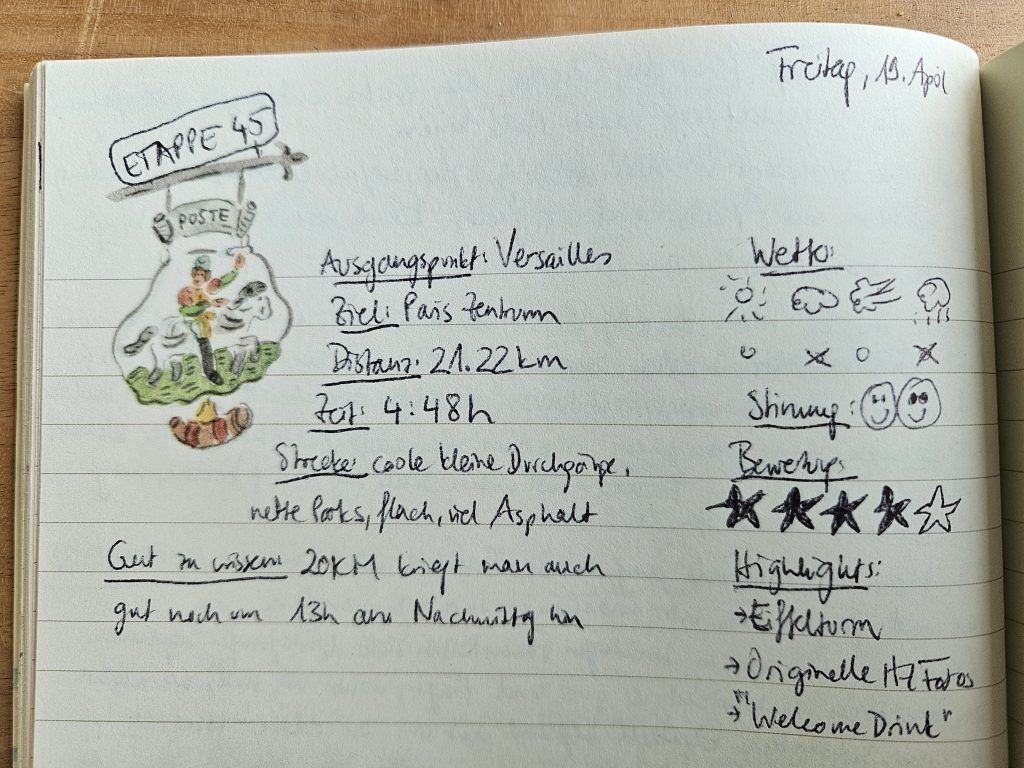 Freitag, 19. April
ETAPPE 45
POSTE
Ausgangspunkt: Versailles
Ziel: Paris Zentrum
Distanz: 21.22 km
Zeit: 4:48h
Strecke: coole kleine Durchgänge,
nette Parks, flach, viel Asphalt
Gut zu wissen: 20KM kriegt man auch
gut noch um 13h am Nachmittag hin
Wetter:
Stimmung:
Bewertung:
Highlights:
→ Eiffelturm
→ Originelle Fotos
→ "Welcome Drink"